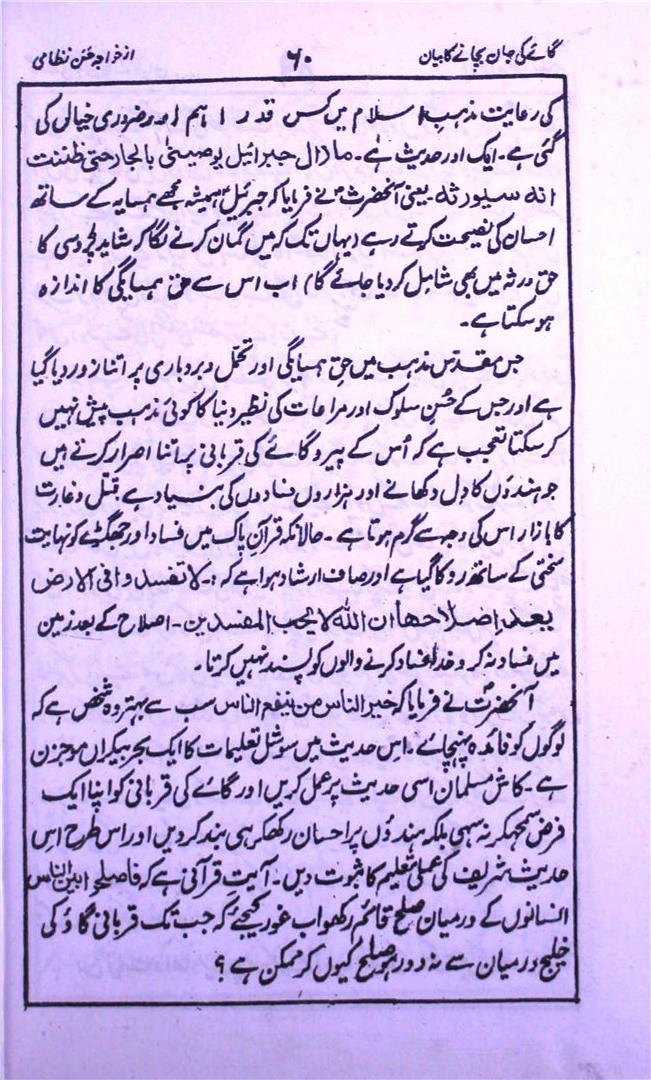 گائے کی جان بچانے کا بیان ۶۰ از خواجہ حسن نظامی
کی رعایت مذہب اسلام میں کس قدر اہم اور ضروری خیال کی
گئی ہے۔ ایک اور حدیث ہے۔ مازال جبرائیل یوصینی بالجار حتی ظننت
انہ سیورثہ۔ یعنی آنحضرتؐ نے فرمایا کہ جبرئیلؑ ہمیشہ مجھے ہمسایہ کے ساتھ
احسان کی نصیحت کرتے رہے یہاں تک کہ میں گمان کرنے لگا کہ شاید پڑوسی کا
حق ورثہ میں بھی شامل کر دیا جائے گا۔ اب اس سے حق ہمسایگی کا اندازہ
ہو سکتا ہے۔
جس مقدس مذہب میں حق ہمسایگی اور تحمل و بردباری پر اتنا زور دیا گیا
ہے اور جس کے حُسنِ سلوک اور مراعات کی نظیر دنیا کا کوئی مذہب پیش نہیں
کر سکتا تعجب ہے کہ اُس کے پیرو گائے کی قربانی پر اتنا اصرار کرتے ہیں
جو ہندوؤں کا دل دکھانے اور ہزاروں فسادوں کی بنیاد ہے قتل و غارت
کا بازار اس کی وجہ سے گرم ہوتا ہے۔ حالانکہ قرآن پاک میں فساد اور جھگڑے کو نہایت
سختی کے ساتھ روکا گیا ہے اور صاف ارشاد ہوا ہے کہ :۔ لا تفسدوا فی الارض
بعد اصلاحھا ان اللہ لا یحب المفسدین۔ اصلاح کے بعد زمین
میں فساد نہ کرو خدا فساد کرنے والوں کو پسند نہیں کرتا۔
آنحضرتؐ نے فرمایا کہ خیر الناس من ینفع الناس سب سے بہتر وہ شخص ہے کہ
لوگوں کو فائدہ پہنچائے۔ اس حدیث میں سوشل تعلیمات کا ایک بحر بیکراں موجزن
ہے۔ کاش مسلمان اسی حدیث پر عمل کریں اور گائے کی قربانی کو اپنا ایک
فرض سمجھکر نہ سہی بلکہ ہندوؤں پر احسان رکھکر ہی بند کر دیں اور اس طرح اس
حدیث شریف کی عملی تعلیم کا ثبوت دیں۔ آیت قرآنی ہے کہ فاصلحوا بین الناس
انسانوں کے درمیان صلح قائم رکھو اب غور کیجئے کہ جب تک قربانی گاؤ کی
خلیج درمیان سے نہ دور ہو صلح کیوں کر ممکن ہے؟